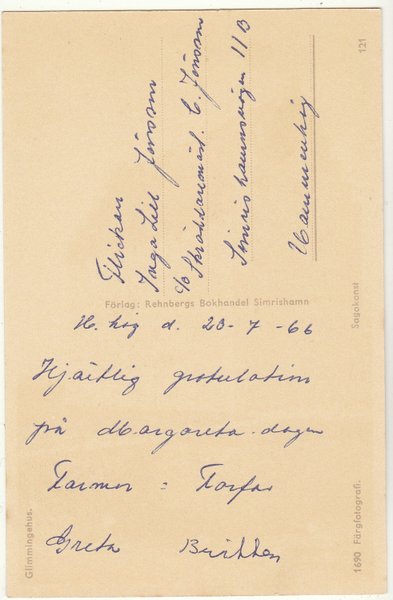 Flickan
Inga Lill Jönsson
c/o Skräddaremäst. C. Jönsson
Simrishamnsvägen 11 B
Hammenhög
121
Förlag: Rehnbergs Bokhandel Simrishamn
Sagokonst
H. hög d. 20-7-66
Hjärtlig gratulation
på Margareta-dagen
Farmor = Farfar
Greta
Glimmingehus.
1690 Färgfotografi.